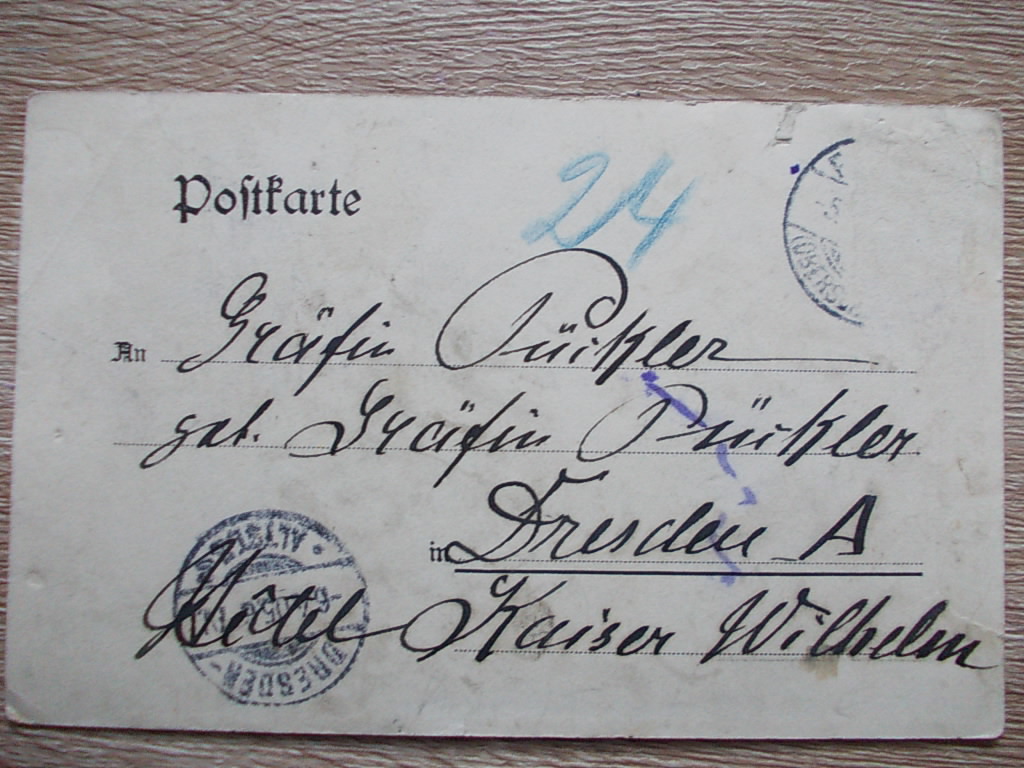 Postkarte
24
(OBERS
An Gräfin Pückler
geb. Gräfin Pückler
in Dresden A
Hôtel Kaiser Wilhelm
DRESDEN-
ALTST.